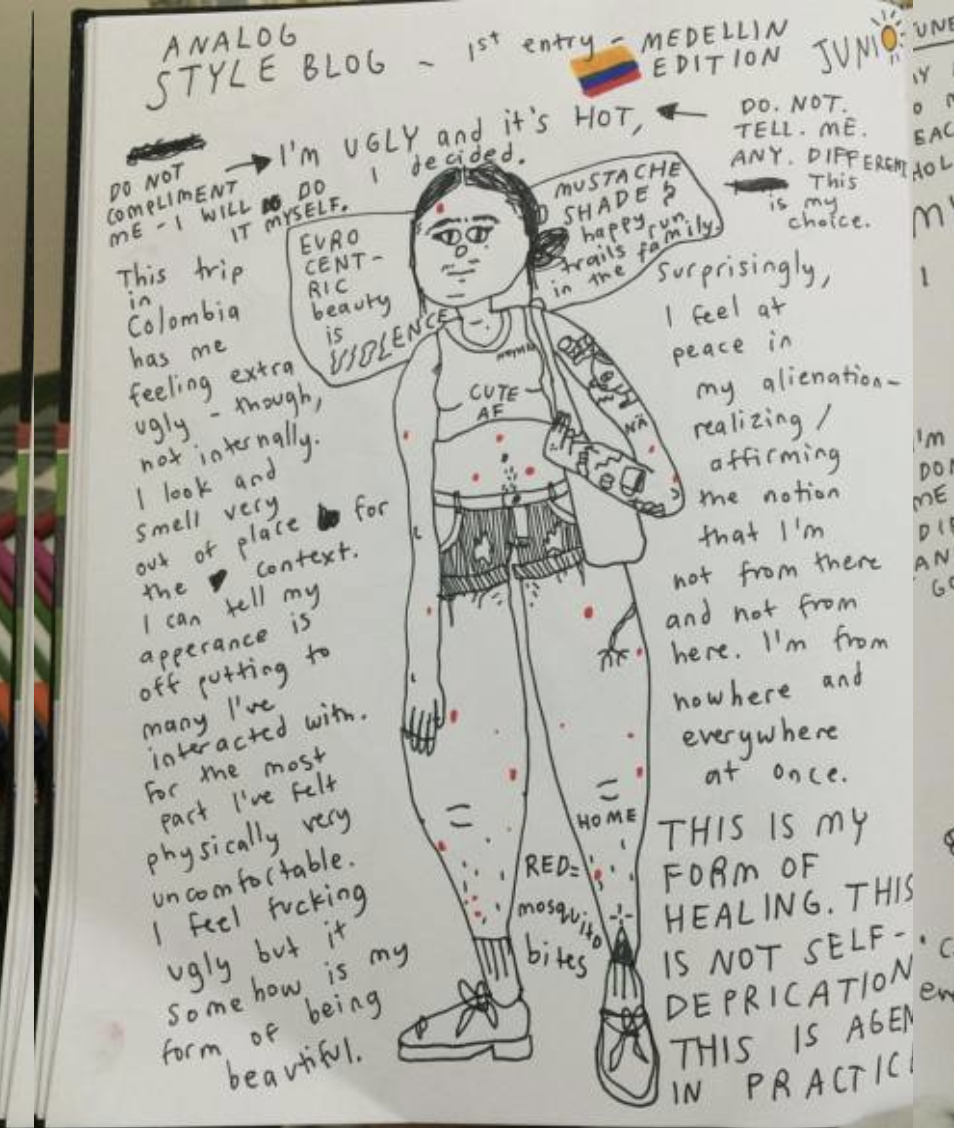 ANALOG
STYLE BLOG ~ 1st entry - MEDELLIN
EDITION
JUNIO
I'M UGLY and it's HOT,
I decided.
DO NOT
COMPLIMENT
ME - I WILL DO
IT MYSELF.
DO. NOT.
TELL. ME.
ANY. DIFFERENT
This
is my
choice.
EURO
CENT-
RIC
beauty
is
VIOLENCE
MUSTACHE
SHADE &
happy
trails run
in the family.
This trip
in
Colombia
has me
feeling extra
ugly - though,
not internally.
I look and
smell very
out of place for
the context.
I can tell my
apperance is
off putting to
many I've
interacted with.
For the most
part I've felt
physically very
uncomfortable.
I feel fucking
ugly but it
somehow is my
form of being
beautiful.
CUTE
AF
NA
HOME
RED=
mosquito
bites
Surprisingly,
I feel at
peace in
my alienation-
realizing /
affirming
the notion
that I'm
not from there
and not from
here. I'm from
nowhere and
everywhere
at once.
THIS IS MY
FORM OF
HEALING. THIS
IS NOT SELF-
DEPRICATION
THIS IS AGEN
IN PRACTIC